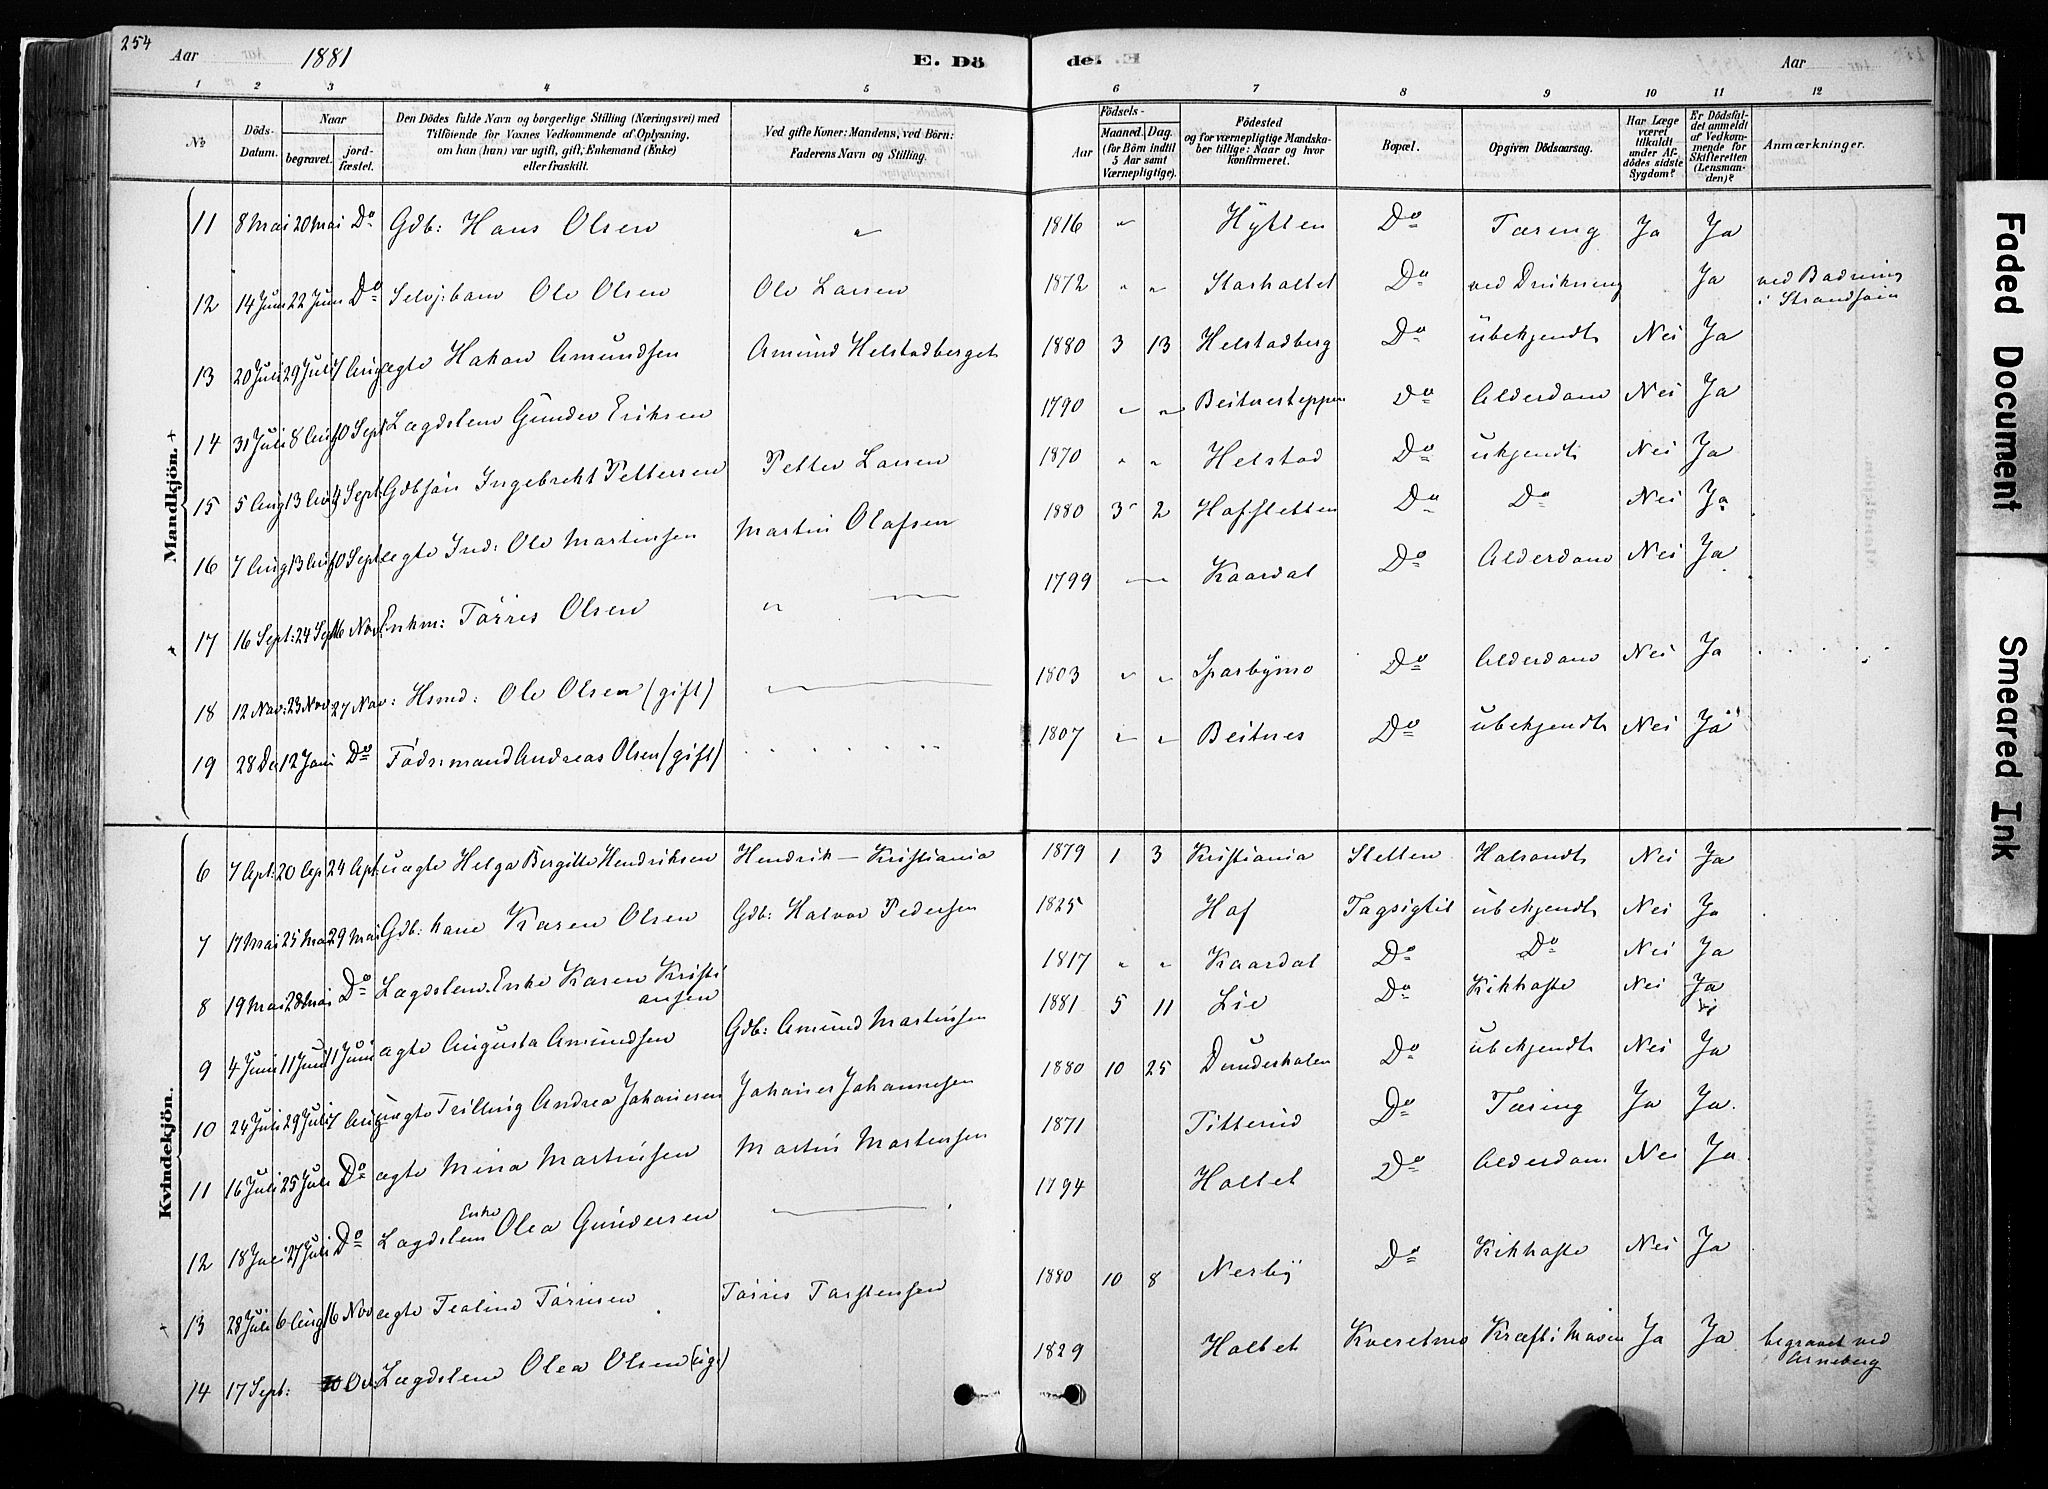 254
Aar 1881
E. Dö
de.
Aar
1 2 3 4 5 6 7 8 9 10 11 12
№
Döds-Datum.
Naar
begravet.
jord-fæstet.
Den Dödes fulde Navn og borgerlige Stilling (Næringsvei) med
Tilföiende for Voxnes Vedkommende af Oplysning,
om han (hun) var ugift, gift, Enkemand (Enke)
eller fraskilt.
Ved gifte Koner: Mandens, ved Börn:
Faderens Navn og Stilling.
Födsels-
Aar
Maaned. Dag.
(for Börn indtil
5 Aar samt
Værnepligtige).
Födested
og for værnepligtige Mandska-
ber tillige: Naar og hvor
konfirmeret.
Bopæl.
Opgiven Dödsaarsag.
Har Læge
været
tilkaldt
under Af-
dödes sidste
Sygdom?
Er Dödsfal-
det anmeldt
af Vedkom-
mende for
Skifteretten
(Lensman-
den)?
Anmærkninger.
Mandkjön.
11 8 Mai 20 Mai Do Gdb: Hans Olsen " 1816 " Hytten Do Tæring Ja Ja
12 14 Juni 22 Juni Do Selvj:barn Ole Olsen Ole Larsen 1872 " " Starholtet Do ved Drukning Ja ved Badning
i Strandsöin
13 20 Juli 29 Juli 7 Aug ægte Hakon Amundsen Amund Helstadberget 1880 3 13 Helstadberg Do übekjendt Nei Ja
14 31 Juli 8 Aug 10 Sept Lægdslem Gunder Eriksen 1790 " " Beitnesteppen Do Alderdom Nei Ja
15 5 Aug 13 Aug 4 Sept: Gdbsön Ingebrekt Pettersen Petter Larsen 1870 " " Helstad Do ukjendt Nei Ja
16 7 Aug 13 Aug 10 Sept ægte Ind: Ole Martinsen Martin Olafsen 1880 3 2 Hofsletten Do Do Nei Ja
17 16 Sept: 24 Sept 16 Nov: Enkm: Törris Olsen " 1799 " Kaardal Do Alderdom Nei Ja
18 12 Nov: 23 Nov 27 Nov: Hsmd: Ole Olsen (gift) 1803 " " Sparbymo Do Alderdom Nei Ja
19 28 De 12 Jani Do Födr:mand Andreas Olsen (gift) 1807 " " Beitnes Do übekjendt Nei Ja
Kvindekjön.
6 7 Apt: 20 Ap 24 Apt: uægte Helga Bergitte Hendriksen Hendrik — Kristiania 1879 1 3 Kristiania Sletten Halsondt Nei Ja
7 17 Mai 25 Mai 29 Mai Gdb: kone Karen Olsen Gdb: Halvor Pedersen 1825 Hof Tagsigtil übekjendt Nei Ja
8 19 Mai 28 Mai Do Lægdslem. Enke Karen Kristi
ansen 1817 " " Kaardal Do Do Nei Ja
9 4 Juni 11 Juni 11 Juni ægte Augusta Amundsen Gdb: Amund Martinsen 1881 5 11 Lie Do Kikhoste Nei Ja
10 24 Juli 29 Juli 7 Aug: uægte Trilling Andrea Johanesen Johanes Johannesen 1880 10 25 Dunderholen Do übekjendt Nei Ja
11 16 Juli 25 Juli Do ægte Mina Martinsen Martin Martensen 1871 Titterud Do Tæring Ja Ja.
12 18 Juli 27 Juli Do Lægdslem Enke Olea Gundersen 1794 Holtet Do Alderdom Nei Ja
13 28 Juli 6 Aug 16 Nov ægte Teoline Törrisen Törris Torstensen 1880 10 8 Nerby Do Kikhoste Nei Ja
14 17 Sept: Lægdslem Olea Olsen (ug:) 1829 Holtet Kveselmo Kræft i Maven Ja Ja begravet ved
Arneberg
Faded Document
Smeared Ink